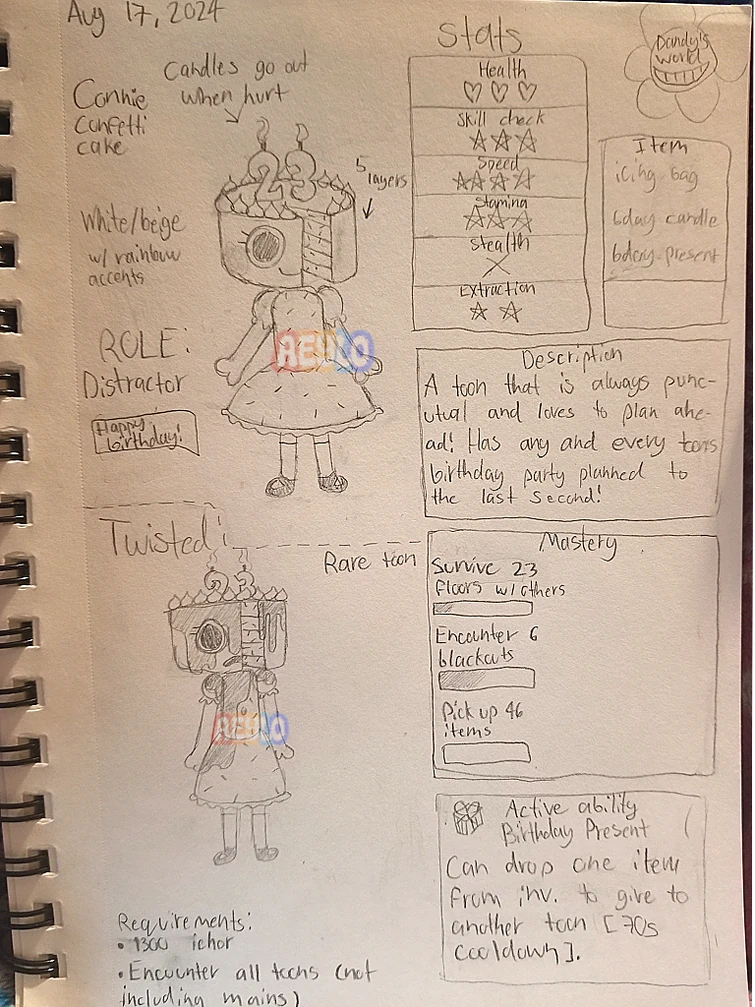 Aug 17, 2024
Connie
Confetti
cake
Candles go out
when hurt
23
5
layers
White/beige
w/ rainbow
accents
ROLE:
Distractor
Happy
birthday!
REYLO
Stats
Health
Skill check
Speed
Stamina
Stealth
Extraction
Dandy's
world
Item
icing bag
bday candle
bday present
Description
A toon that is always punc-
utual and loves to plan ahe-
ad! Has any and every toons
birthday party planned to
the last second!
Twisted:
Rare toon
23
REYLO
Mastery
Survive 23
floors w/others
Encounter 6
blackouts
Pick up 46
items
Active ability
Birthday Present
Can drop one item
from inv. to give to
another toon [70s
cooldown].
Requirements:
• 1300 ichor
• Encounter all toons (not
including mains)